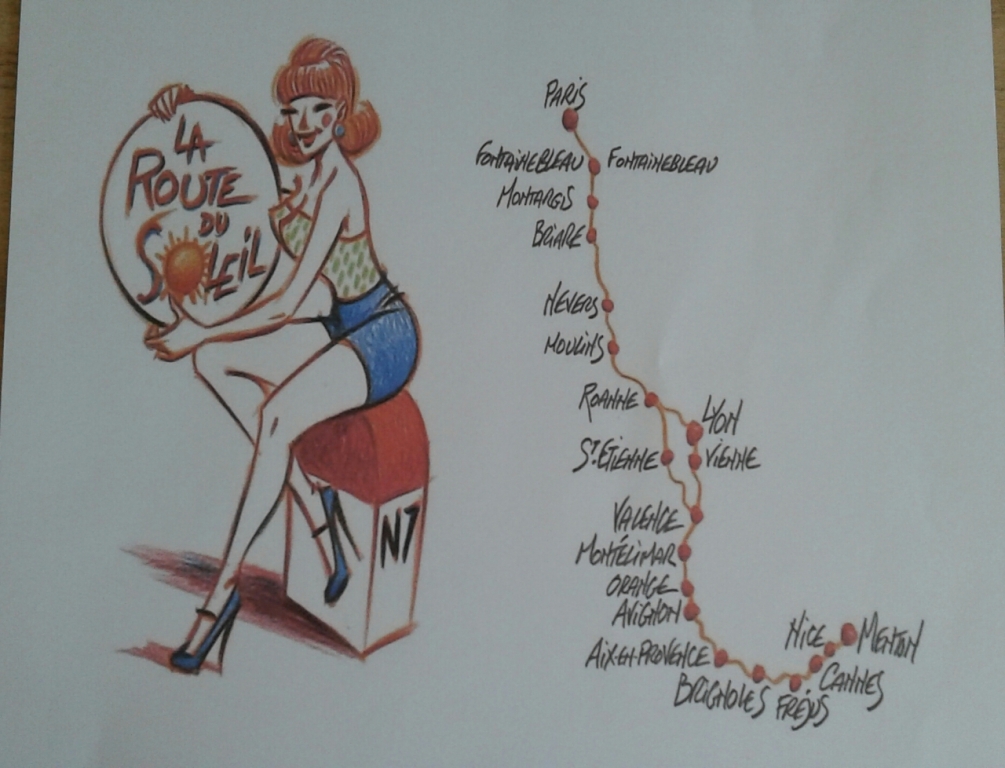 LA
ROUTE
DU
SOLEIL
N7
PARIS
FONTAINEBLEAU FONTAINEBLEAU
MONTARGIS
BRIARE
NEVERS
MOULINS
ROANNE
LYON
ST. ETIENNE
VIENNE
VALENCE
MONTÉLIMAR
ORANGE
AVIGNON
AIX-EN-PROVENCE
BRIGNOLES
FRÉJUS
CANNES
NICE
MENTON